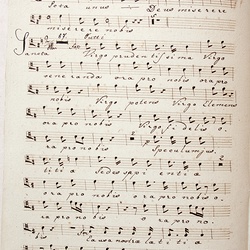 Ista unus Deus miserere
miserere nobis
57. Tutti
Sancta Virgo prudentissima Virgo
veneranda ora pro nobis ora pro
nobis Virgo potens Virgo Clemens
ora pro nobis Virgo fidelis o.
ra pro nobis Speculum jus.
titiæ Sedes sapi entiæ
ora pro nobis ora pro nobis o.
ra pro nobis ora pro no.
bis Causa nostra lætitiæ